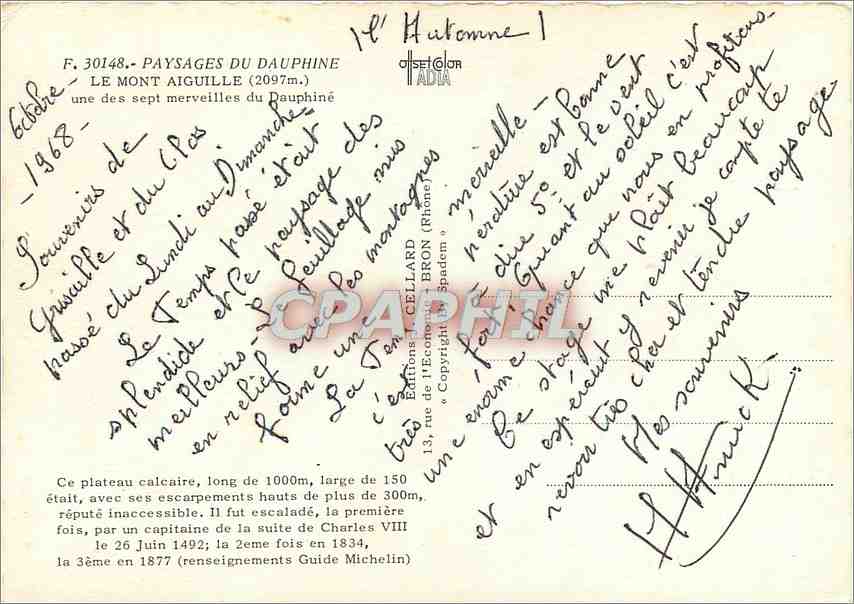 F. 30148.- PAYSAGES DU DAUPHINE
LE MONT AIGUILLE (2097m.)
une des sept merveilles du Dauphiné
OFFSET COLOR
IADIA
(l'Automne)
Octobre -
- 1968 -
Souvenirs de
Grisaille et du Clos
passé du Lundi au Dimanche
Le Temps passé était
splendide et le paysage des
meilleurs - Le feuillage mis
en relief avec les montagnes
forme une
merveille -
La Température est bonne
c'est à dire 5° et le vent
très fort, Quant au soleil c'est
une énorme chance que nous en profitons.
Ce stage me plaît beaucoup
et en espérant y revenir je compte te
revoir très cher et tendre paysage
Mes souvenirs
Editions J. CELLARD
13, rue de l'Economie - BRON (Rhône)
« Copyright By Spadem »
CPAPHIL
Ce plateau calcaire, long de 1000m, large de 150
était, avec ses escarpements hauts de plus de 300m,
réputé inaccessible. Il fut escaladé, la première
fois, par un capitaine de la suite de Charles VIII
le 26 Juin 1492; la 2eme fois en 1834,
la 3ème en 1877 (renseignements Guide Michelin)